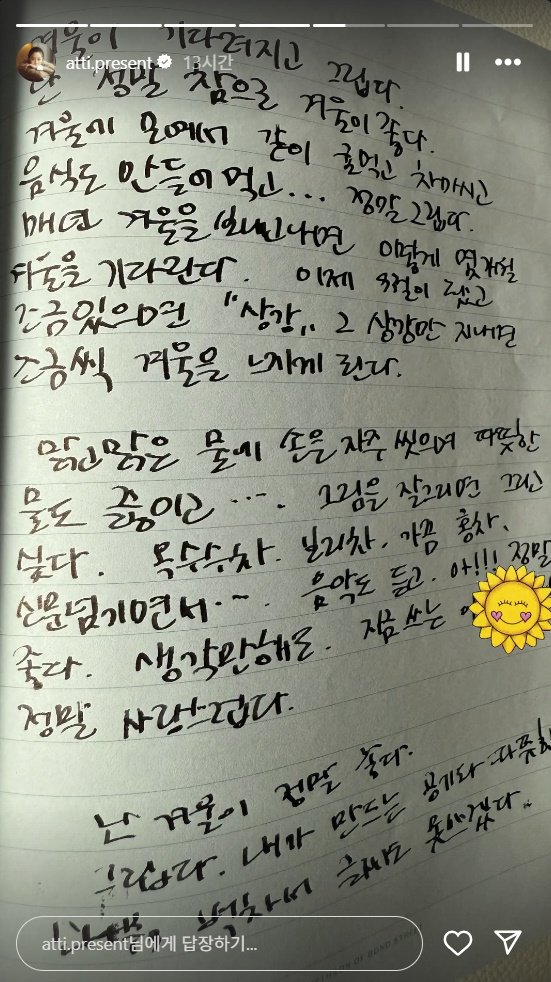 atti.present 13시간
겨울이 기다려지고 그립다.
난 정말 참으로 겨울이 좋다.
겨울에 모여서 같이 귤먹고 차마시고
음식도 만들어 먹고... 정말 그립다.
매년 겨울을 보내면 이렇게
겨울을 기다린다. 이제 9월이 됐고
조금있으면 "상강" 그 상강만 지내면
조금씩 겨울을 느끼게 된다.
맑고맑은 물에 손을 자주 씻으며 따뜻한
물도 끓이고 .... 그림을 잘그리면 그리고
싶다. 옥수수차. 보리차. 가끔 홍차.
신문넘기면서.... 음악도 듣고. 아!!! 정말
좋다. 생각만해도. 지금 쓰는
정말 사랑스럽다.
난 겨울이 정말 좋다.
그립다. 내가 만드는 공기와 따뜻한
벅차서 글씨도 못쓰겠다.
atti.present님에게 답장하기...